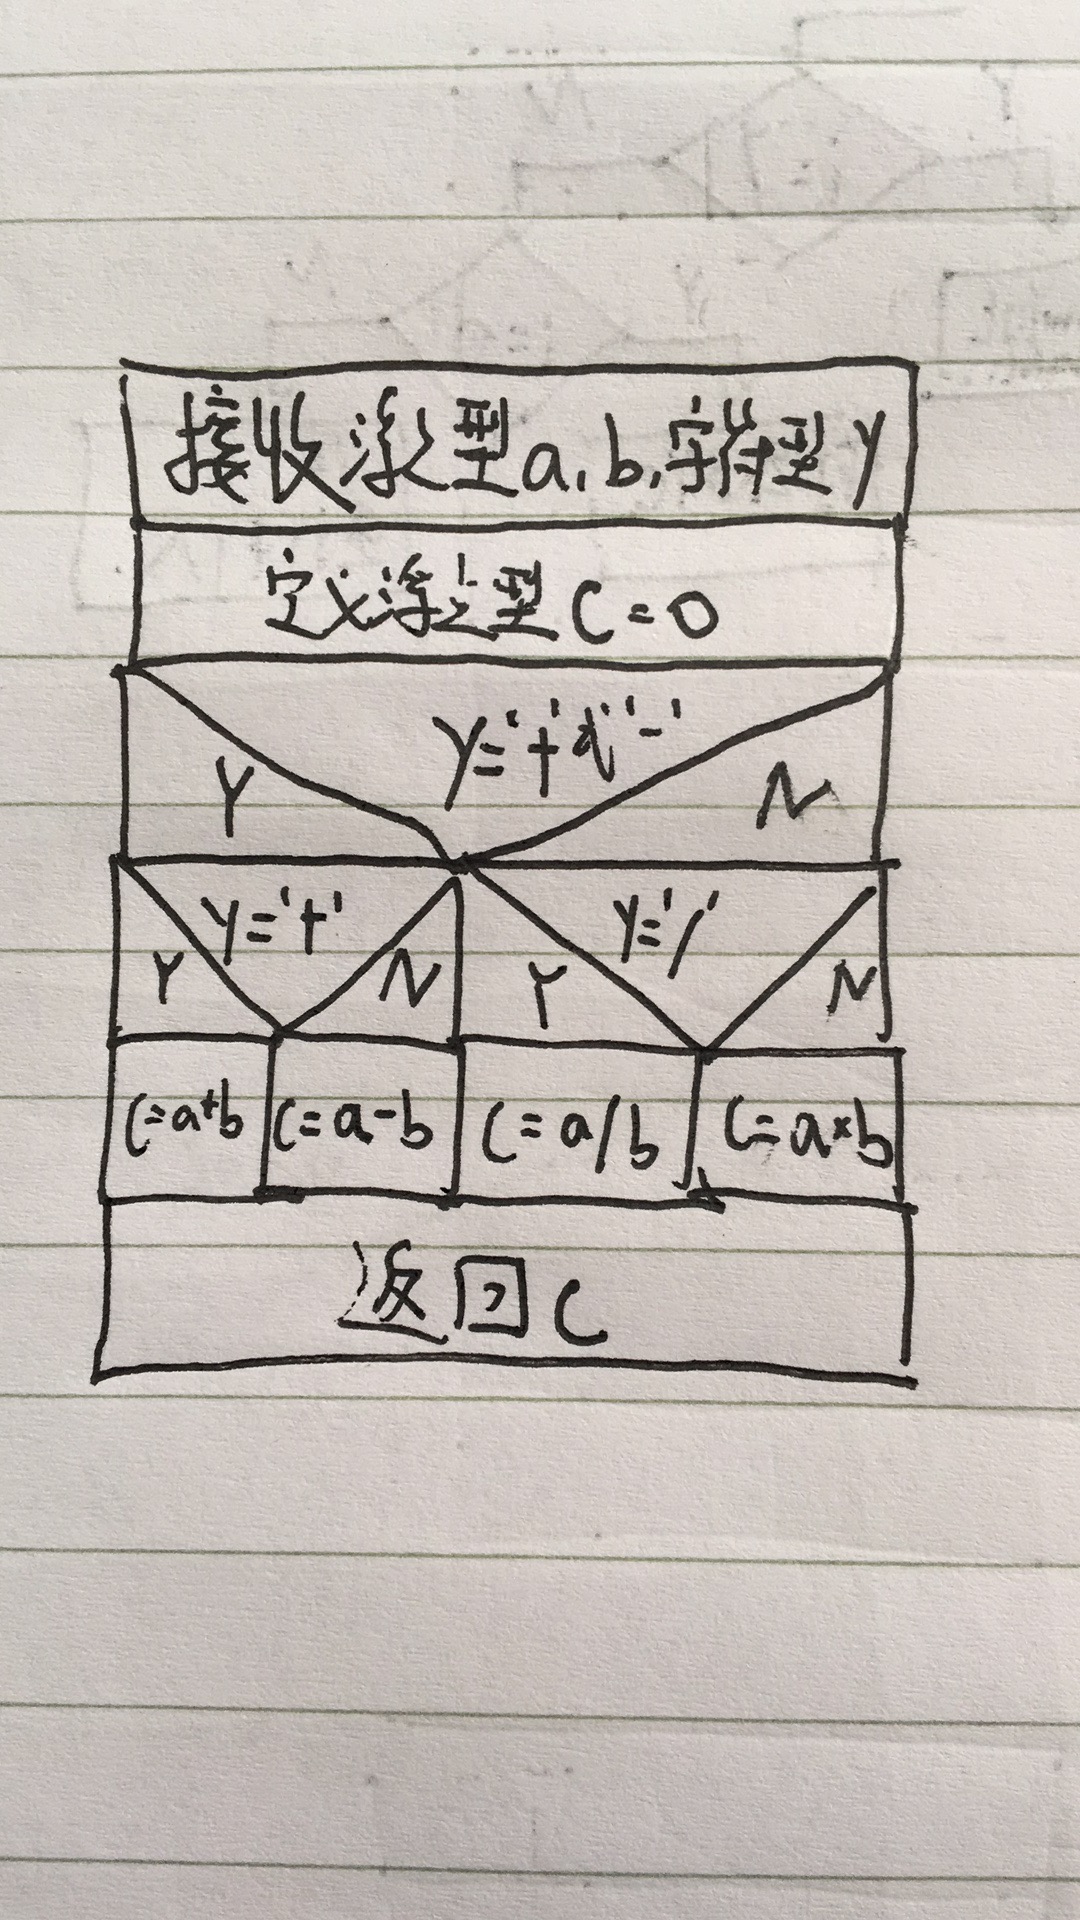 接收浮点型a,b,字符型y
定义浮点型C=0
y='+'或'-'
Y
N
y='+'
y='/'
Y
N
Y
N
C=a+b
C=a-b
C=a/b
C=a*b
返回C